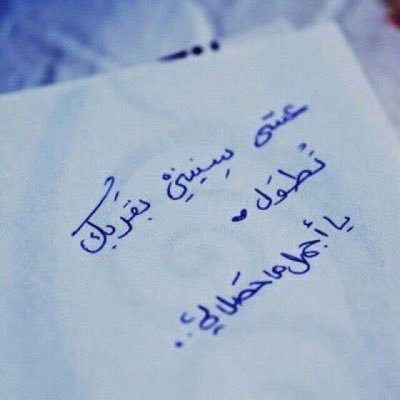 عسى سِنينيْ بقربُك
تْطوَل
يا أجمل ما حصَلي..